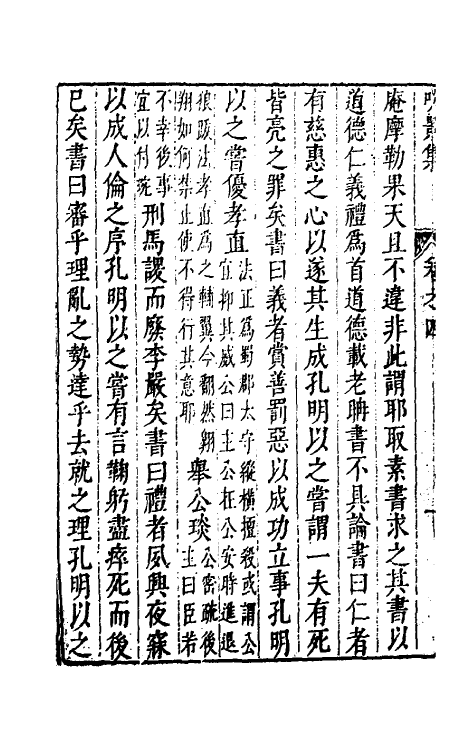 卷之四
庵摩勒果天且不違非此謂耶取素書求之其書以
道德仁義禮爲首道德載老聃書不具論書曰仁者
有慈惠之心以遂其生成孔明以之嘗謂一夫有死
皆亮之罪矣書曰義者賞善罰惡以成功立事孔明
以之嘗優孝直法正爲蜀郡太守縱橫擅殺或謂公
宜抑其威公曰主公在公安時進退
狼跋法孝直爲之輔翼今翻然翱
翔如何禁止使不得行其意耶舉公琰公密疏後
主曰臣若
不幸後事
宜以付琬刑馬謖而廢李嚴矣書曰禮者夙興夜寐
以成人倫之序孔明以之嘗有言鞠躬盡瘁死而後
已矣書曰審乎理亂之勢達乎去就之理孔明以之